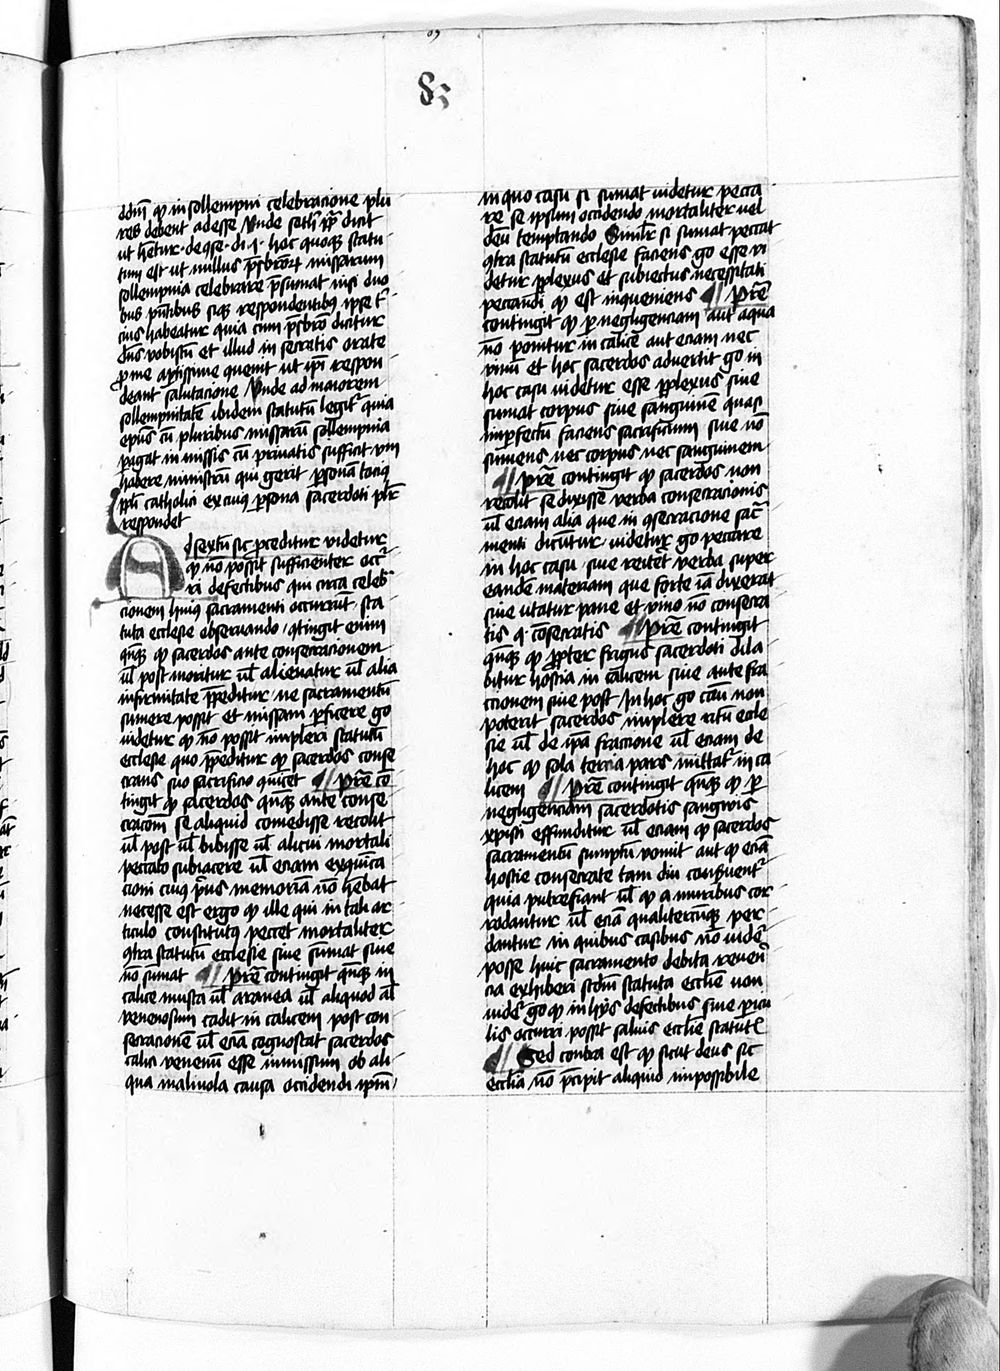 83
ddm̄ qͥ in sollempni celebracione plu
res debent adesse Vnde soth' ꝑp̄ dicit
ut hētur de ꝯse. di. i. hoc quoqꝫ statu
tum est ut nullus p̄sbiteroꝝ missarum
sollempnia celebrare p̄sumat nisi duo
bus pn̄tibus sibiqꝫ respondentibus ipse t̄
cius habeatur quia cum p̄sbr̄o dicitur
dn̄s vobiscū et illud in secretis orate
ꝓ me aptissime quenit ut ip̄i respon
deant salutacione Vnde ad maiorem
sollempnitatē ibidem statutū legit̄ quia
ep̄us cū pluribus missarū sollempnia
pagat in missis cū priuatis sufficit vm̄
habere ministrū qui gerit ꝑsonā tociꝰ
ppl̄i catholici ex cuiꝰ ꝑsona sacerdoti pl̄r
respondet
Ad sextū sic ꝓceditur videtur
qͥ nō possit sufficienter occr̄
ri defectibus qui circa celeb̄
cionem huiꝰ sacramenti occurrūt sta
tuta ecclesie obseruando ꝯtingit enim
qn̄qꝫ qͥ sacerdos ante consecracionem
ul̄ post moritur ul̄ alienatur ul̄ alia
infirmitate p̄peditur ne sacramentū
sumere possit et missam ꝑficere go
videtur qͥ nō possit impleri statutū
ecclesie quo p̄peditur qͥ sacerdos conse
crans suo sacrificio quicet ¶ Prē cō
tingit qͥ sacerdos qn̄qꝫ ante conse
cracōm se aliquid comedisse recolit
ul̄ post ul̄ bibisse ul̄ alicui mortali
peccato subiacere ul̄ eciam excōica
cioni cuiꝰ pͥus memoriā nō hēbat
necesse est ergo qͥ ille qui in tali ar
ticulo constitutꝰ peccet mortaliter
ꝯtra statutū ecclesie siue sūmat siue
nō sumat ¶ Prē contingit qn̄qꝫ in
calice musca ul̄ aranea ul̄ aliquod al̄
venenosum cadit in calicem post con
secracionē ul̄ eciā cognostat sacerdos
calici venenū esse inmissum ob ali
qua maliuola causa occidendi ip̄m
in quo casu si sumat videtur pecca
re se ipsum occidendo mortaliter uel
deū temptando Simil̄r si sumat peccat
ꝯtra statutū ecclesie faciens go esse vi
detur ꝑplexus et subiectus necessitati
peccandi qͥ est inqueniens ¶ Prē
contingit qͥ ꝑ negligenciam aut aqua
nō ponitur in calice aut eciam nec
vinū et hoc sacerdos aduertit go in
hoc casu videtur esse ꝑplexus siue
sumat corpus siue sanguinē quasi
imꝑfectū faciens sacrificium siue nō
sumens nec corpus nec sanguinem
¶ Prē contingit qͥ sacerdos non
recolit se dixisse verba consecracionis
ul̄ eciam alia que in ꝯsecracione sac̄
menti dicūtur videtur go peccare
in hoc casu siue reitet verba super
eandē materiam que forte iā dixerat
siue utatur pane et vino nō consecra
tis q̄ cōsecratis ¶ Prē contingit
qn̄qꝫ qͥ ꝓpter frigus sacerdoti dila
bitur hostia in calicem siue ante fra
ctionem siue post In hoc go casu non
poterit sacerdos implere ritū eccle
sie ul̄ de ip̄a fractione ul̄ eciam de
hoc qͥ sola tercia pars mittat̄ in ca
licem ¶ Prē contingit qn̄qꝫ qͥ ꝑ
negligenciam sacerdotis sanguis
xpisti effunditur ul̄ eciam qͥ sacerdos
sacramentū sumptū vomit aut qͥ eciā
hostie consecrate tam diu conseruent̄
quia putrefiant ul̄ qͥ a muribus cor
rodantur ul̄ eciā qualitercūqꝫ per
dantur in quibus casibus nō vide᷑
posse huic sacramento debita reueren
cia exhiberi scdm̄ statuta ecclīe non
vide᷑ go qͥ in hijs defectibus siue ꝑicu
lis occurri possit saluis ecclīe statutꝭ
¶ Sed contra est qͥ sicut deus sic
ecclīa nō p̄cipit aliquid impossibile